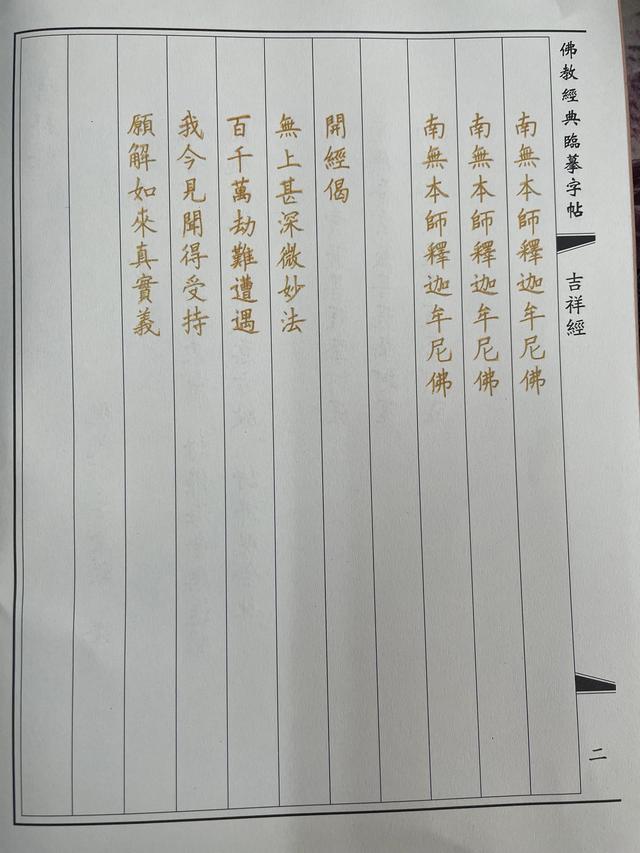 佛教經典臨摹字帖
吉祥經
二
南無本師釋迦牟尼佛
南無本師釋迦牟尼佛
南無本師釋迦牟尼佛
開經偈
無上甚深微妙法
百千萬劫難遭遇
我今見聞得受持
願解如來真實義